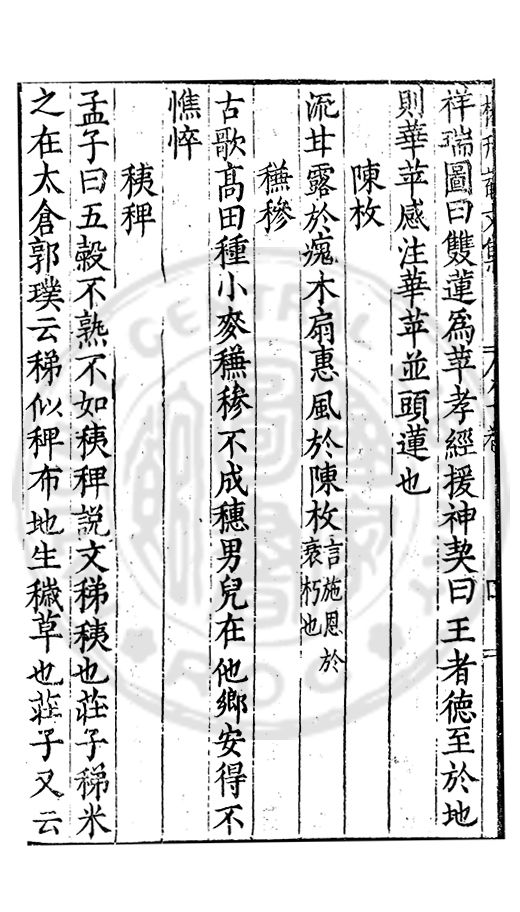 祥瑞圖曰雙蓮爲苹孝經援神契曰王者德至於地
則華苹感注華苹並頭蓮也
陳枚
流甘露於瘣木扇惠風於陳枚言施恩於衰朽也
䅿穇
古歌髙田種小麥䅿穇不成穗男兒在他鄉安得不
憔悴
䄺稗
孟子曰五穀不熟不如䄺稗說文稊䄺也莊子稊米
之在太倉郭璞云稊似稗布地生穢草也莊子又云